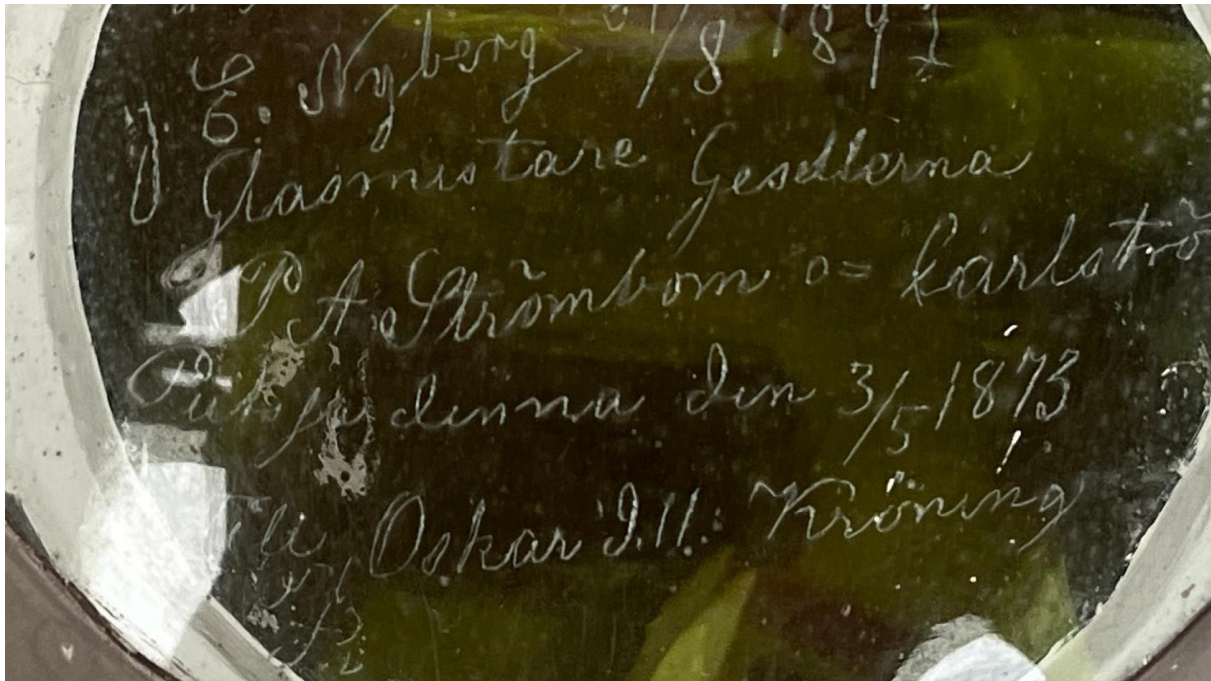 E. Nyberg /8 1892
Glasmistare Gesellerna
P A Strömbom o= Karlströ
Putsade denna den 3/5 1873
Till Oskar II. Kröning